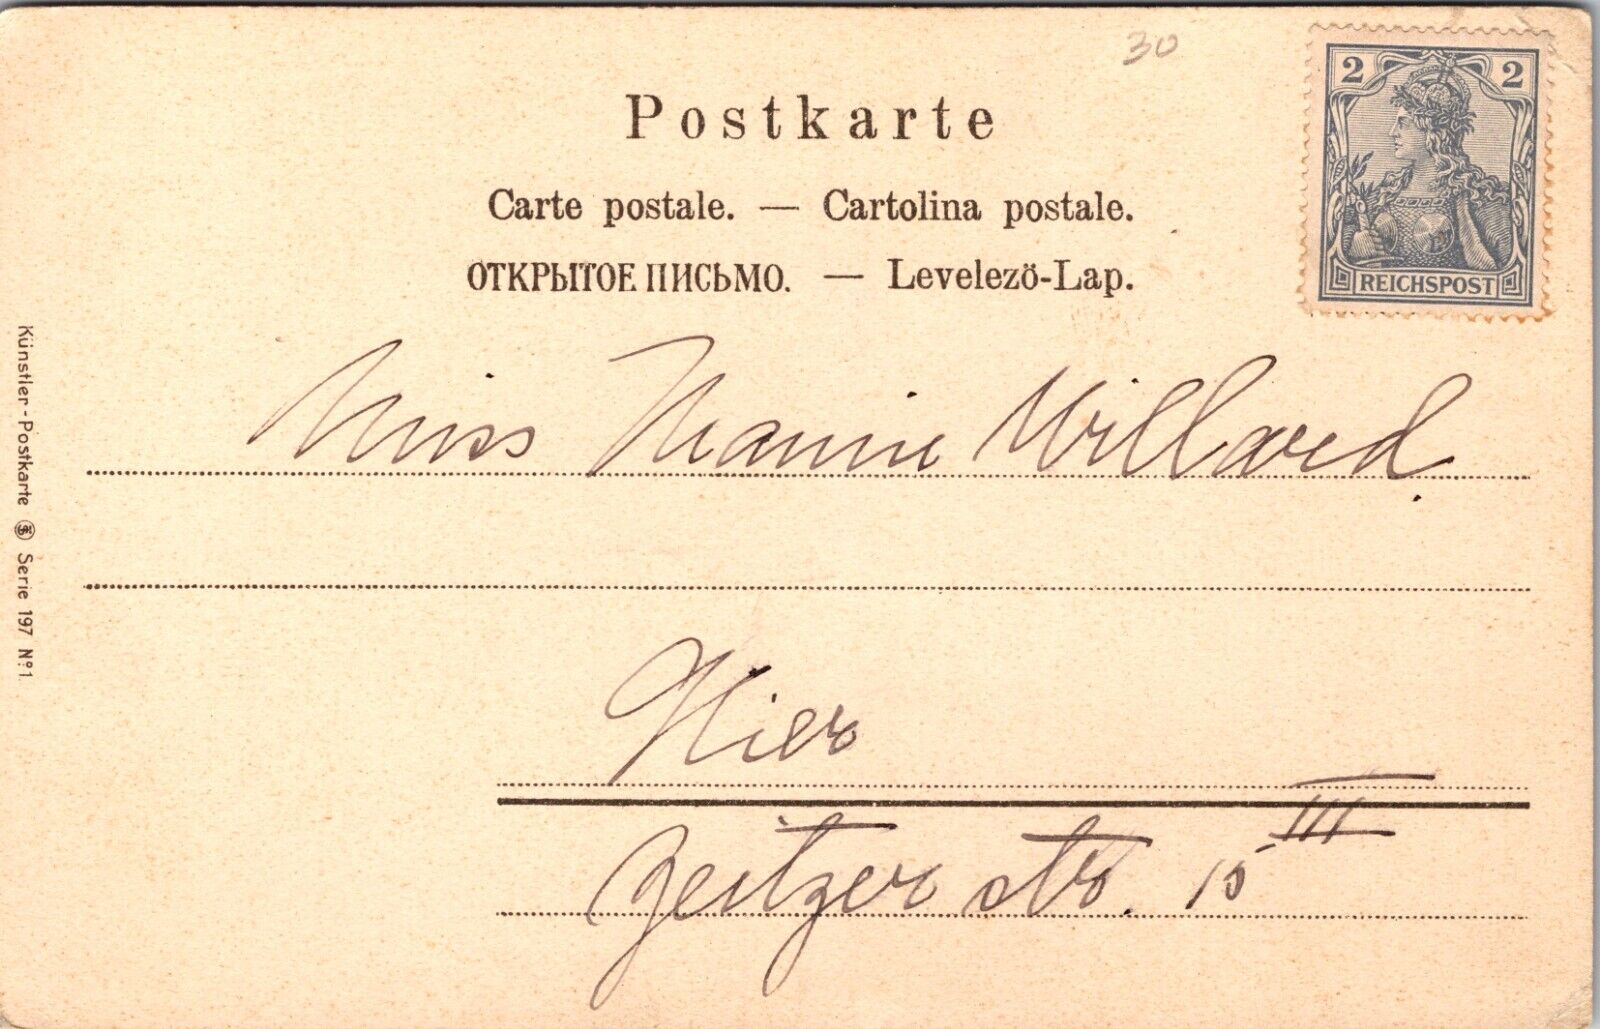 30
2 2
REICHSPOST
Postkarte
Carte postale. — Cartolina postale.
ОТКРЫТОЕ ПИСЬМО. — Levelezö-Lap.
Miss Mamie Willard
Hier
Zeitzer str. 15 III
Künstler-Postkarte Serie 197 Nº 1